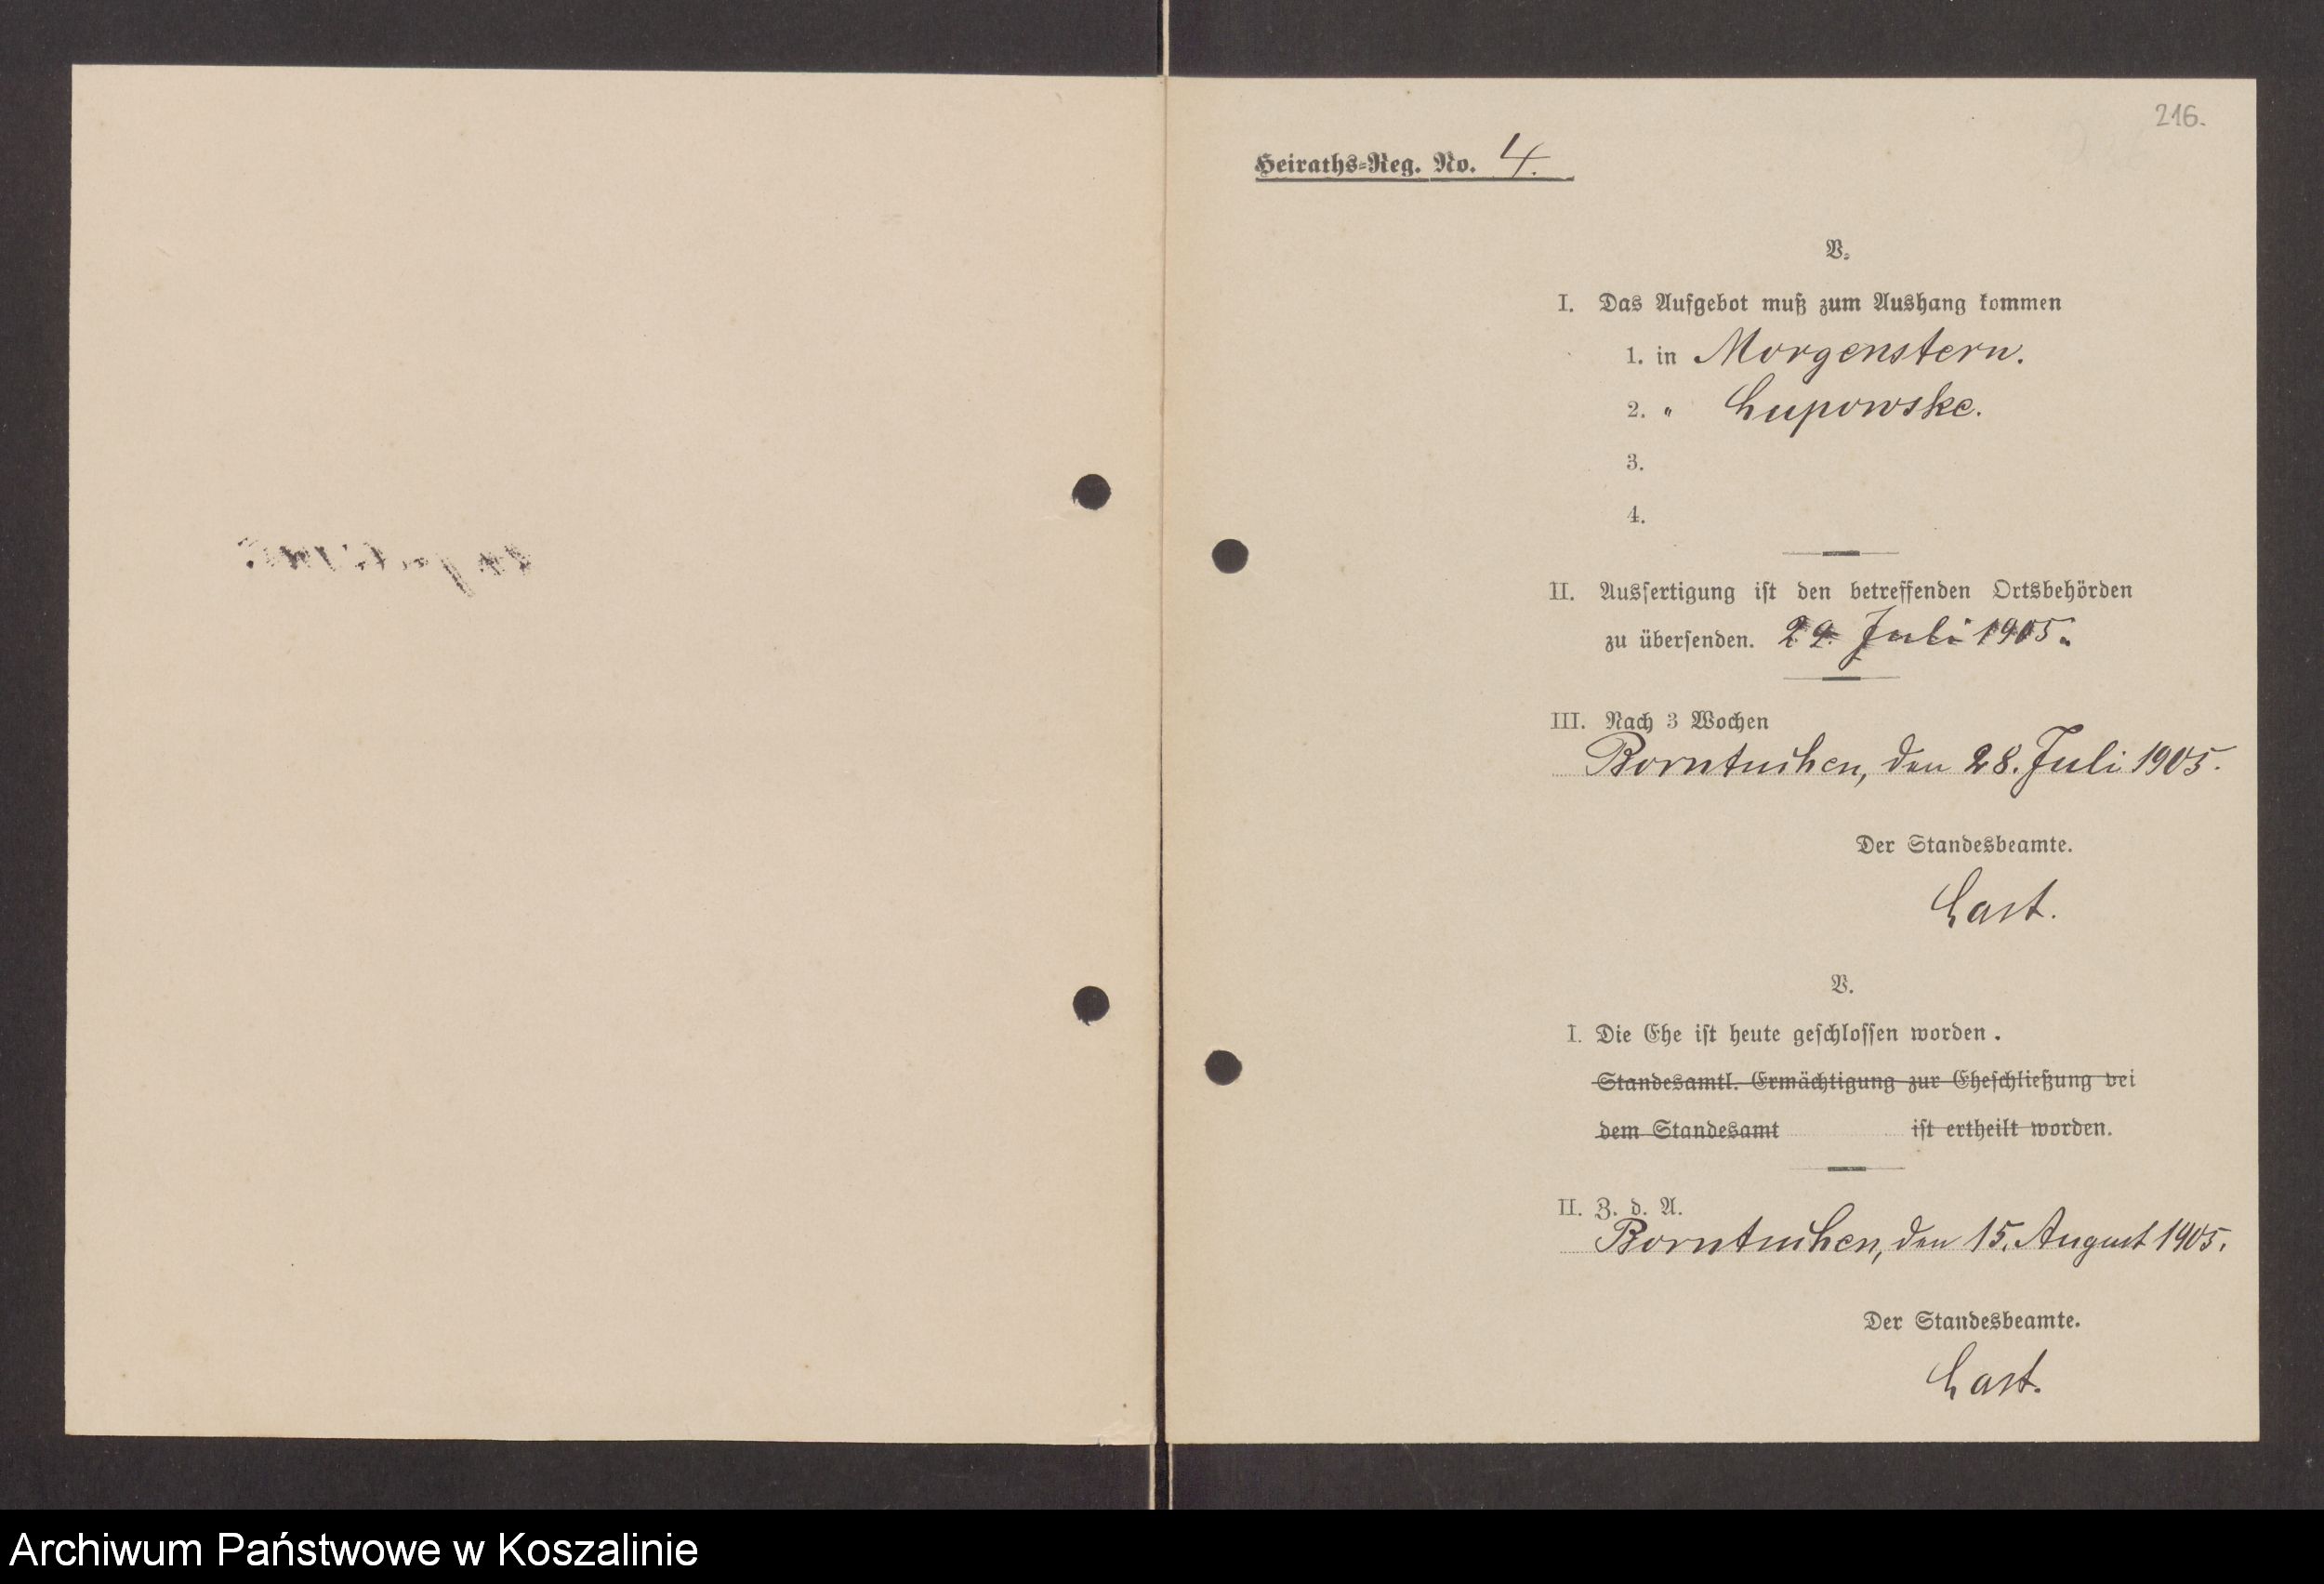 216.
Heiraths-Reg. No. 4.
V.
I. Das Aufgebot muß zum Aushang kommen
1. in Morgenstern.
2. " Lupowske.
3.
4.
II. Ausfertigung ist den betreffenden Ortsbehörden
zu übersenden. 29. Juli 1905.
III. Nach 3 Wochen
Borntuchen, den 28. Juli 1905.
Der Standesbeamte.
Last.
V.
I. Die Ehe ist heute geschlossen worden.
Standesamtl. Ermächtigung zur Eheschließung bei
dem Standesamt ist ertheilt worden.
II. Z. d. A.
Borntuchen, den 15. August 1905.
Der Standesbeamte.
Last.
Archiwum Państwowe w Koszalinie